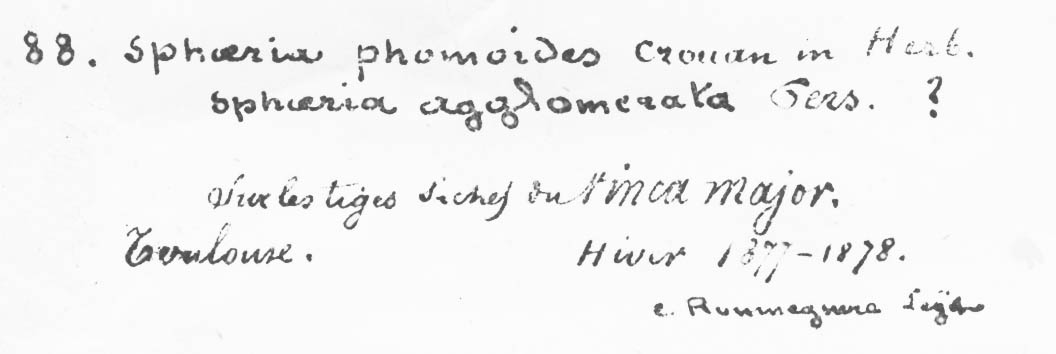 88. Sphæria phomoides Crouan in Herb.
Sphæria agglomerata Pers. ?
Sur les tiges sèches du Vinca major.
Toulouse. Hiver 1877-1878.
C. Roumeguère